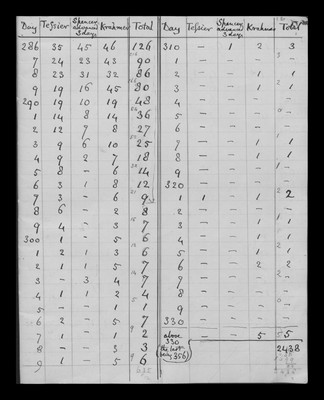 Day Tessier Spencer allowing 3 days Krahmer Total Day Tessier Spencer allowing 3 days Krahmer Total
286 35 45 46 126 310 – 1 2 3
7 24 23 43 90 1 – – – –
8 23 31 32 86 2 – – 1 1
9 19 16 45 80 3 – – 1 1
290 19 10 19 48 4 – – – –
1 14 8 14 36 5 – – – –
2 12 7 8 27 6 – – – –
3 9 6 10 25 7 – – 1 1
4 9 2 7 18 8 – – 1 1
5 8 – 6 14 9 – – – –
6 3 1 8 12 320 – – – –
7 3 – 6 9 1 1 – 1 2
8 6 – 2 8 2 – – – –
9 4 – 3 7 3 – – 1 1
300 1 – 5 6 4 – – 1 1
1 2 1 3 6 5 – – 1 1
2 1 1 5 7 6 – – 2 2
3 – 3 4 7 7 – – – –
4 1 1 2 4 8 – – – –
5 – – 1 1 9 – – – –
6 2 – 5 7 330 – – – –
7 1 – 1 2 above 330 – – 5 5
8 – – 3 3 (the last being 356) 2438
9 1 – 5 6